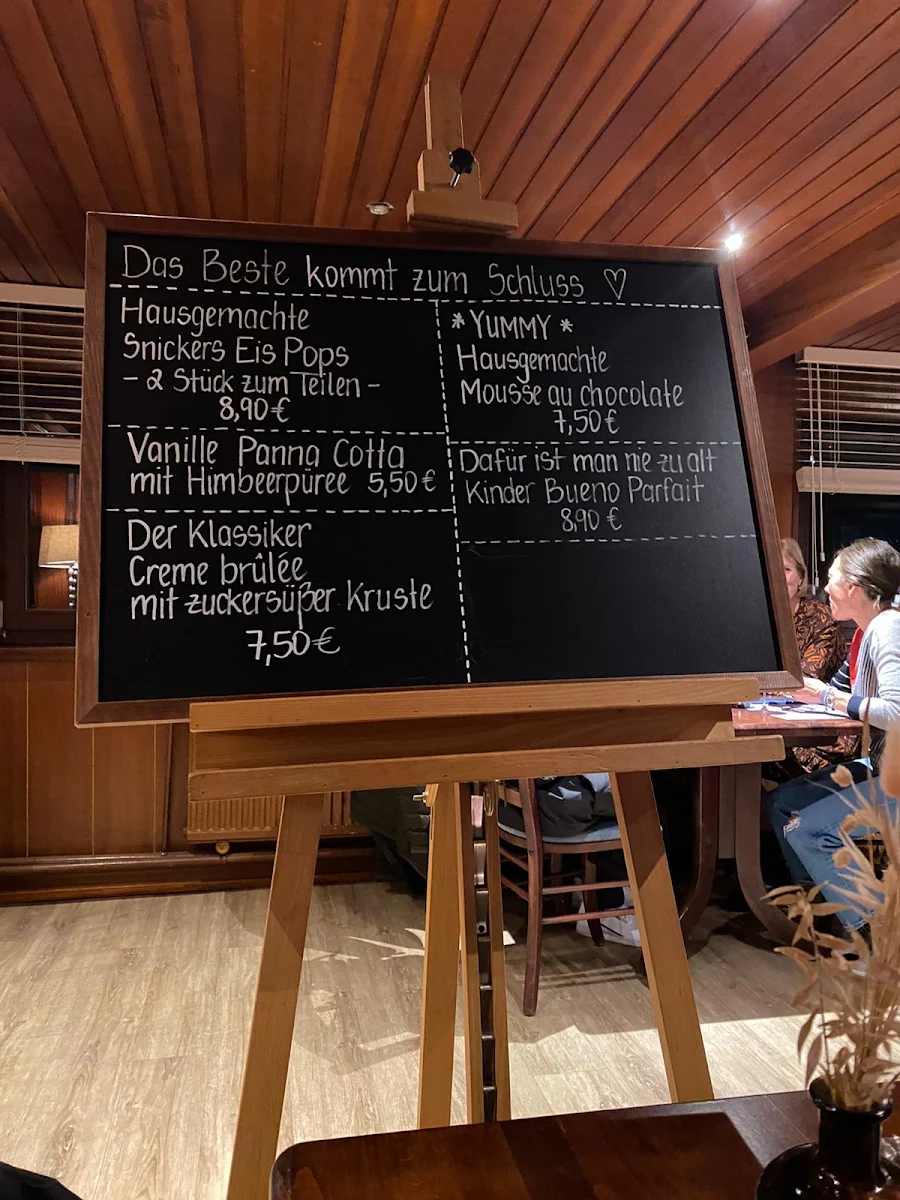 Das Beste kommt zum Schluss ♡
Hausgemachte
Snickers Eis Pops
- 2 Stück zum Teilen -
8,90 €
Vanille Panna Cotta
mit Himbeerpüree 5,50 €
Der Klassiker
Creme brûlée
mit zuckersüßer Kruste
7,50 €
*YUMMY *
Hausgemachte
Mousse au chocolate
7,50 €
Dafür ist man nie zu alt
Kinder Bueno Parfait
8,90 €